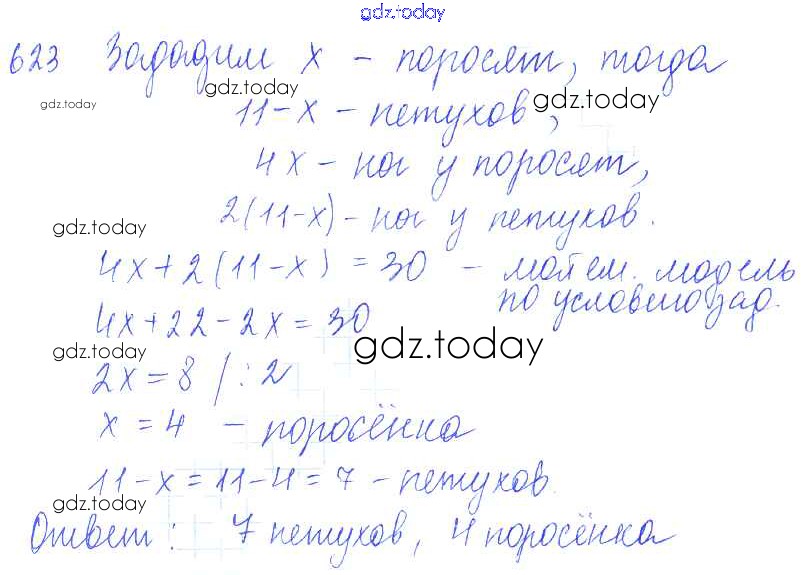 gdz.today
623 Зададим x - поросят, тогда
gdz.today
gdz.today
gdz.today
11-x - петухов,
4x - ног у поросят,
2(11-x) - ног у петухов.
gdz.today
4x+2(11-x) = 30 - матем. модель
по условию зад.
4x+22-2x=30
gdz.today
gdz.today
2x=8 /:2
x=4 - поросёнка
gdz.today
11-x=11-4=7 - петухов.
gdz.today
Ответ: 7 петухов, 4 поросёнка